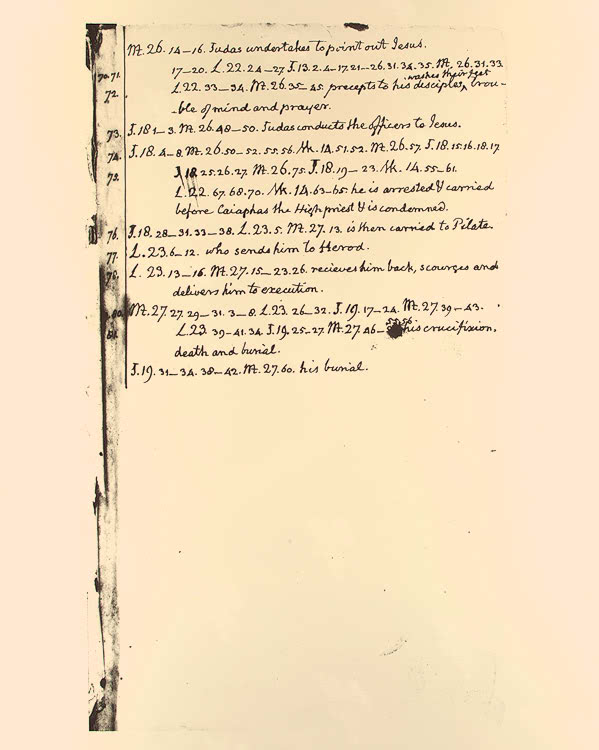 Mt. 26. 14–16. Judas undertakes to point out Jesus.
70.71. 17–20. L. 22. 24–27. J. 13. 2. 4–17. 21–26. 31. 34. 35. Mt. 26. 31. 33.
washes their feet
72. L. 22. 33–34. Mt. 26. 35–45. precepts to his disciples, trou-
-ble of mind and prayer.
73. J. 18 1–3. Mt. 26. 48–50. Judas conducts the officers to Jesus.
74. J. 18. 4–8. Mt. 26. 50–52. 55. 56. Mk. 14. 51. 52. Mt. 26. 57. J. 18. 15. 16. 18. 17.
75. J. 18. 25. 26. 27. Mt. 26. 75. J. 18. 19–23. Mk. 14. 55–61.
L. 22. 67. 68. 70. Mk. 14. 63–65. he is arrested & carried
before Caiaphas the High priest & is condemned.
76. J. 18. 28–31. 33–38. L. 23. 5. Mt. 27. 13. is then carried to Pilate.
77. L. 23. 6–12. who sends him to Herod.
78. L. 23. 13–16. Mt. 27. 15–23. 26. recieves him back, scourges and
delivers him to execution.
Mt. 27. 27. 29–31. 3–8. L. 23. 26–32. J. 19. 17–24. Mt. 27. 39–43.
L. 23. 39–41. 34. J. 19. 25–27. Mt. 27. 46– 55. 56. his crucifixion,
death and burial.
J. 19. 31–34. 38–42. Mt. 27. 60. his burial.